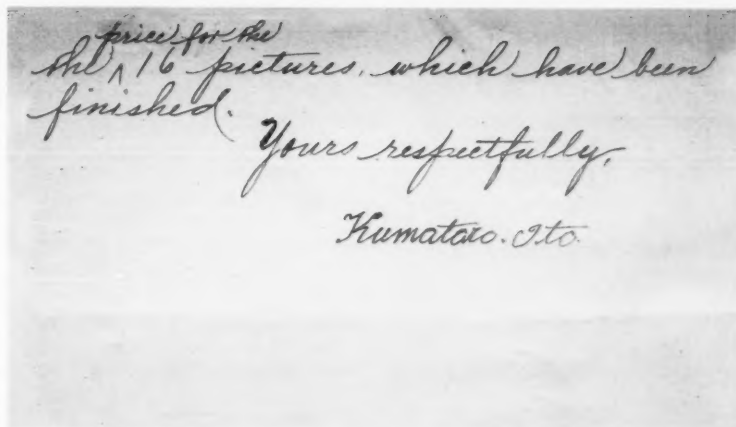 price for the
the ^ 16 pictures, which have been
finished.
Yours respectfully,
Kumataro. Ito.